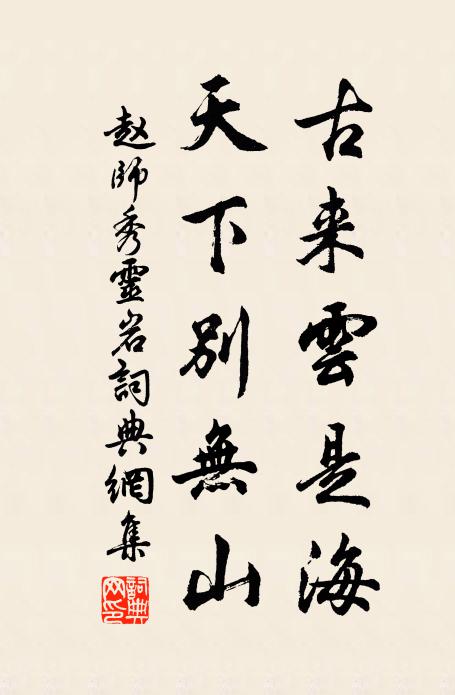 古来雲是海
天下别無山
赵師秀靈岩詞典網集
詞典網印